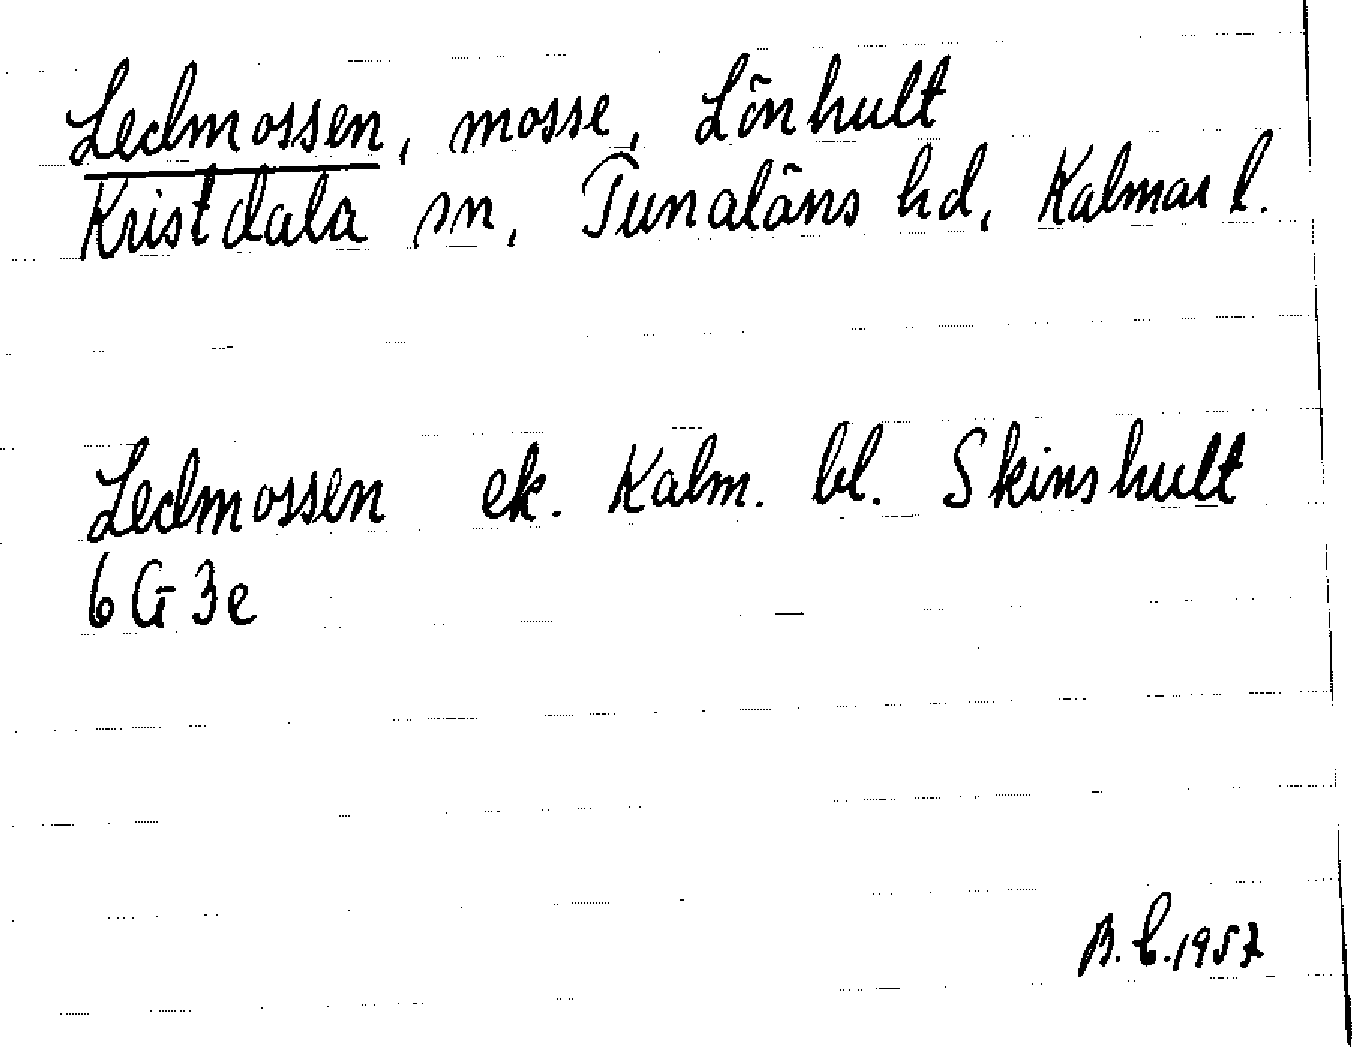 Ledmossen, mosse, Lönhult
Kristdala sn, Tunaläns hd, Kalmar l.
Ledmossen ek. Kalm. bl. Skinshult
6 G 3e
B. C. 1957